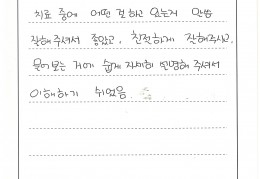 치료 중에 어떤 걸 하고 있는지 말씀
잘해주셔서 좋았고, 친절하게 잘해주시고,
물어보는 거에 쉽게 자세히 설명해 주셔서
이해하기 쉬었음.